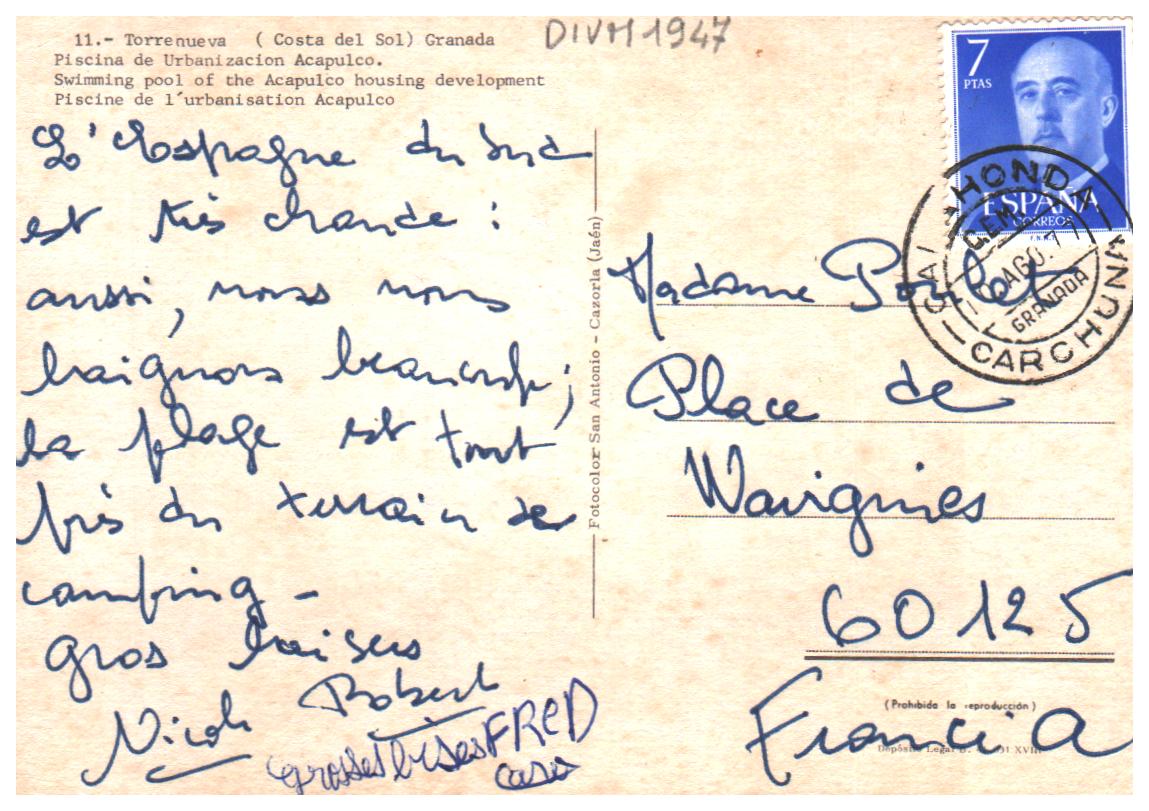 11.- Torrenueva ( Costa del Sol) Granada
Piscina de Urbanizacion Acapulco.
Swimming pool of the Acapulco housing development
Piscine de l'urbanisation Acapulco
DIVM1947
L'Espagne du Sud
est très chaude :
aussi, nous nous
baignons beaucoup ;
la plage est tout
près du terrain de
camping -
gros baisers
Nicole Robert
grosses bises FRED
Fotocolor San Antonio - Cazorla (Jaén)
7
PTAS
ESPAÑA
CORREOS
F.N.M.T.
CALAHONDA
AGO. 77
GRANADA
CARCHUNA
Madame
Place de
Wavignies
60125
Francia
(Prohibida la reproducción)
Depósito Legal B.
XVIII